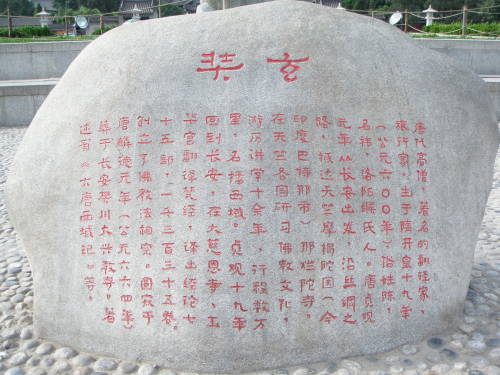 玄奘
唐代高僧,著名的翻译家、
旅行家。生于隋开皇十九年
(公元六〇〇年)俗姓陈,
名祎,洛阳缑氏人。唐贞观
元年从长安出发,沿丝绸之
路,抵达天竺摩揭陀国(今
印度巴特那市)那烂陀寺。
在天竺各国研习佛教文化,
游历讲学十余年,行程数万
里,名播西域。贞观十九年
回到长安,在大慈恩寺、玉
华宫翻译梵经,译出经论七
十五部,一千三百三十五卷。
创立了佛教法相宗。圆寂于
唐麟德元年(公元六六四年)
葬于长安樊川大兴教寺。著
述有《大唐西域记》等。